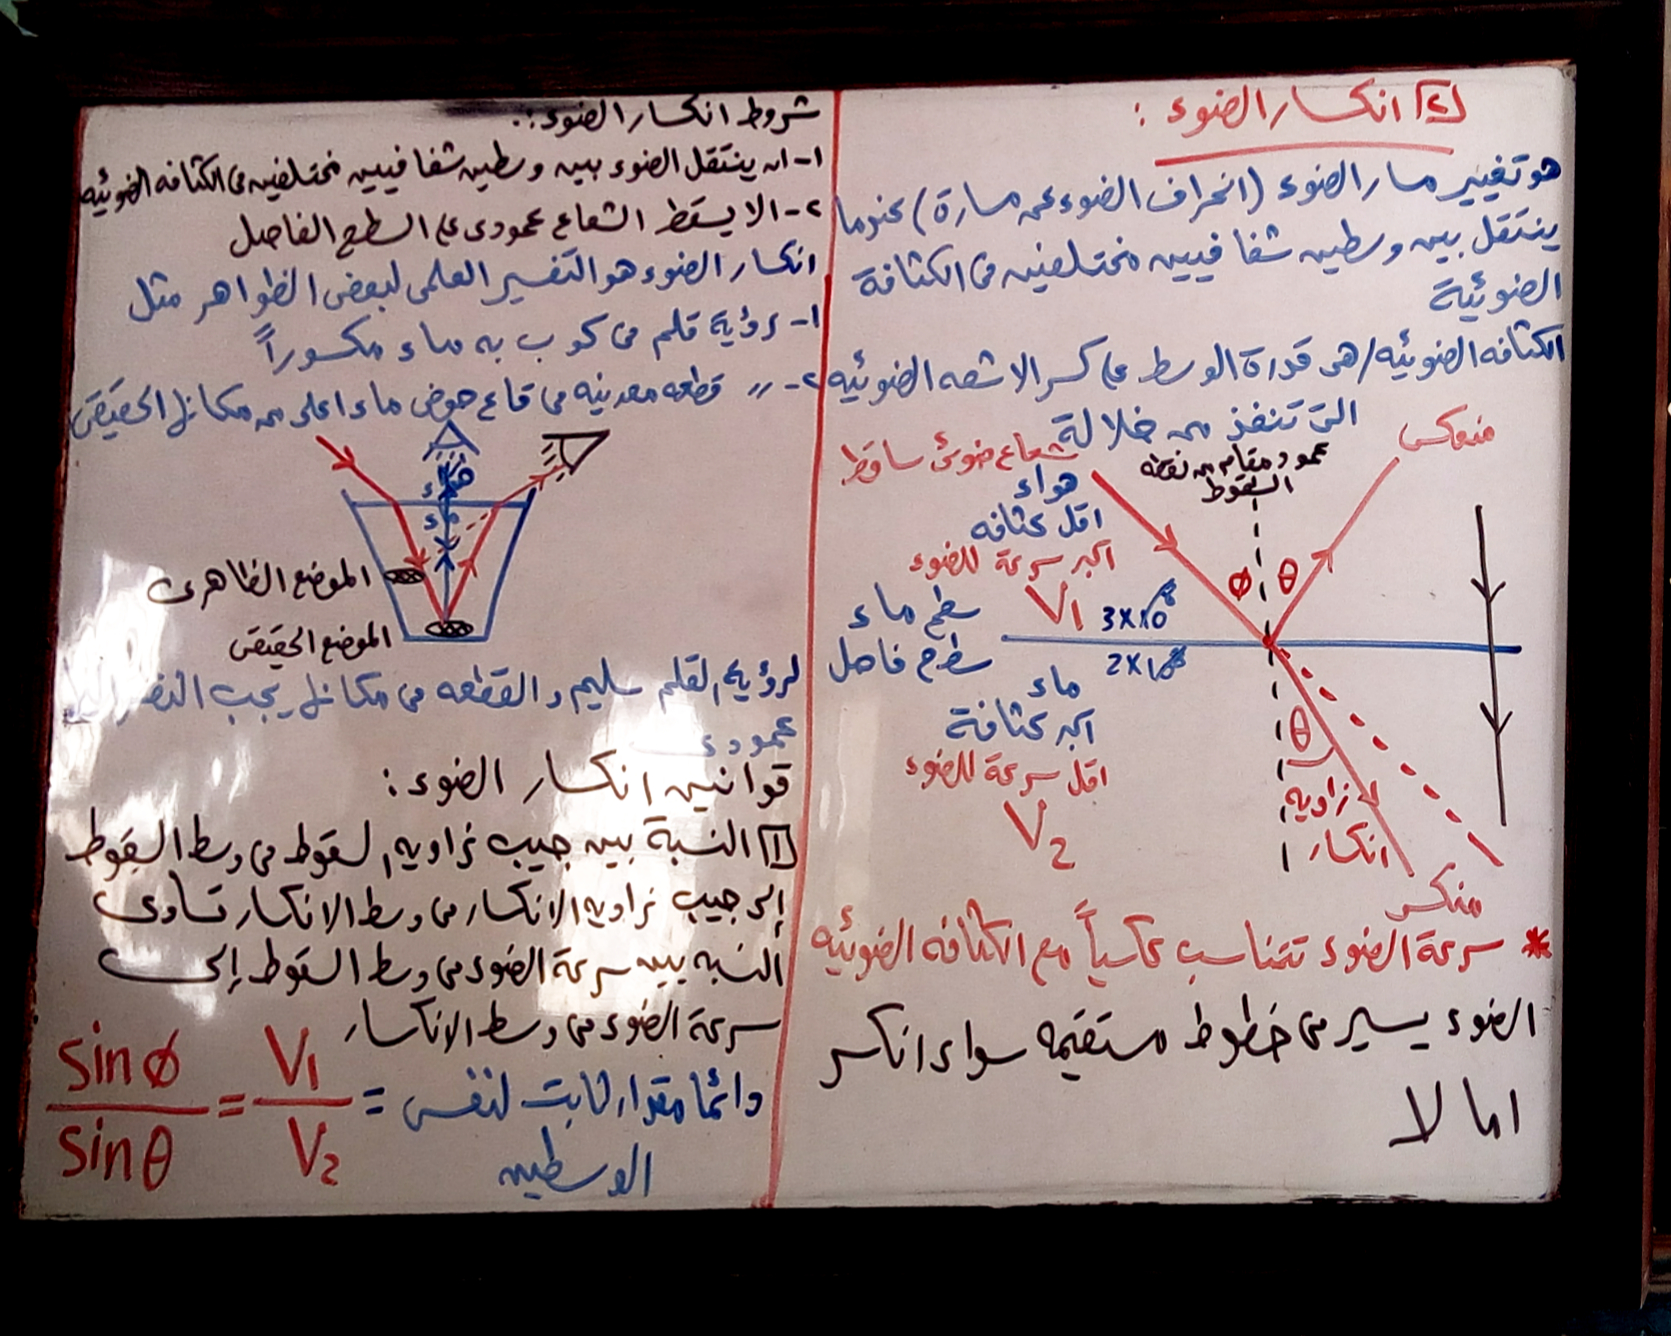 [٢] انكسار الضوء :
هو تغيير مسار الضوء (انحراف الضوء عن مساره) عندما
ينتقل بين وسطين شفافيين مختلفين فى الكثافة
الضوئية
الكثافه الضوئيه / هى قدرة الوسط على كسر الاشعه الضوئيه
التى تنفذ من خلالة
شعاع ضوئى ساقط
عمود مقام من نقطه
السقوط
منعكس
هواء
اقل كثافه
اكبر سرعة للضوء
V1
3x10⁸
φ θ
سطح ماء
سطح فاصل
2x10⁸
ماء
اكبر كثافة
اقل سرعة للضوء
V2
θ
زاويه
انكسار
منكسر
* سرعة الضوء تتناسب عكسياً مع الكثافه الضوئيه
الضوء يسير فى خطوط مستقيمه سواء انكسر
اما لا
شروط انكسار الضوء :.
١- ان ينتقل الضوء بين وسطين شفافيين مختلفين فى الكثافه الضوئيه
٢- الا يسقط الشعاع عمودى على السطح الفاصل
انكسار الضوء هو التفسير العلمى لبعض الظواهر مثل
١- رؤية قلم فى كوب به ماء مكسوراً
٢- 〃 قطعه معدنيه فى قاع حوض ماء اعلى من مكانها الحقيقى
هواء
ماء
الموضع الظاهرى
الموضع الحقيقى
لرؤية القلم سليم و القطعه فى مكانها يجب النظر
عمودى
قوانين انكسار الضوء :
[١] النسبة بين جيب زاويه السقوط فى وسط السقوط
إلى جيب زاويه الانكسار فى وسط الانكسار تساوى
النسبه بين سرعة الضوء فى وسط السقوط إلى
سرعة الضوء فى وسط الانكسار
sin φ / sin θ = V1 / V2 = دائما مقدار ثابت لنفس
الوسطين